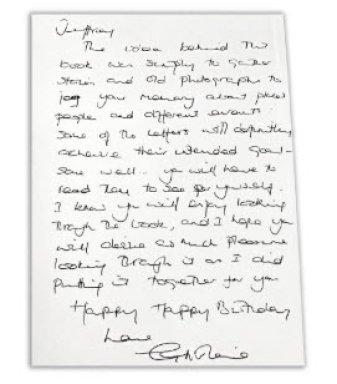 Jeffrey
The idea behind This
book was simply to gather
stories and old photographs to
jog your memory about places
people and different events
Some of The letters will definitely
achieve their intended goal -
some well.. you will have to
read Them to see for yourself.
I know you will enjoy looking
Through The book, and I hope you
will derive as much pleasure
looking Through it as I did
putting it together for you
Happy Happy Birthday
Love
Ghislaine